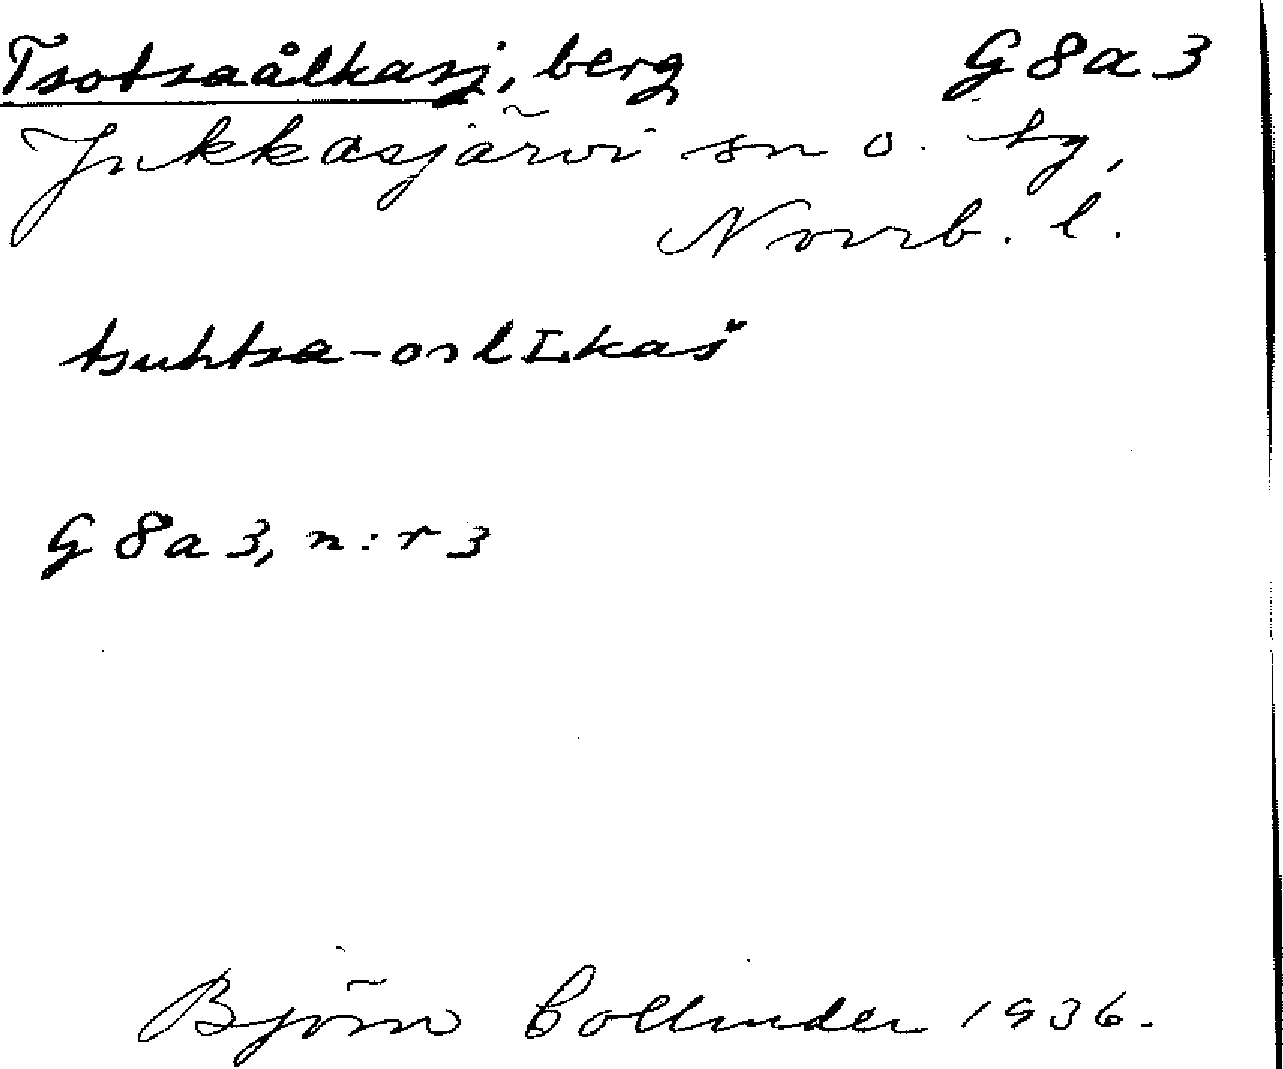 Tsotsaålkasj, berg G8a3
Jukkasjärvi sn o. tg,
Norrb. l.
G8a3, n:r 3
Björn Collinder 1936.